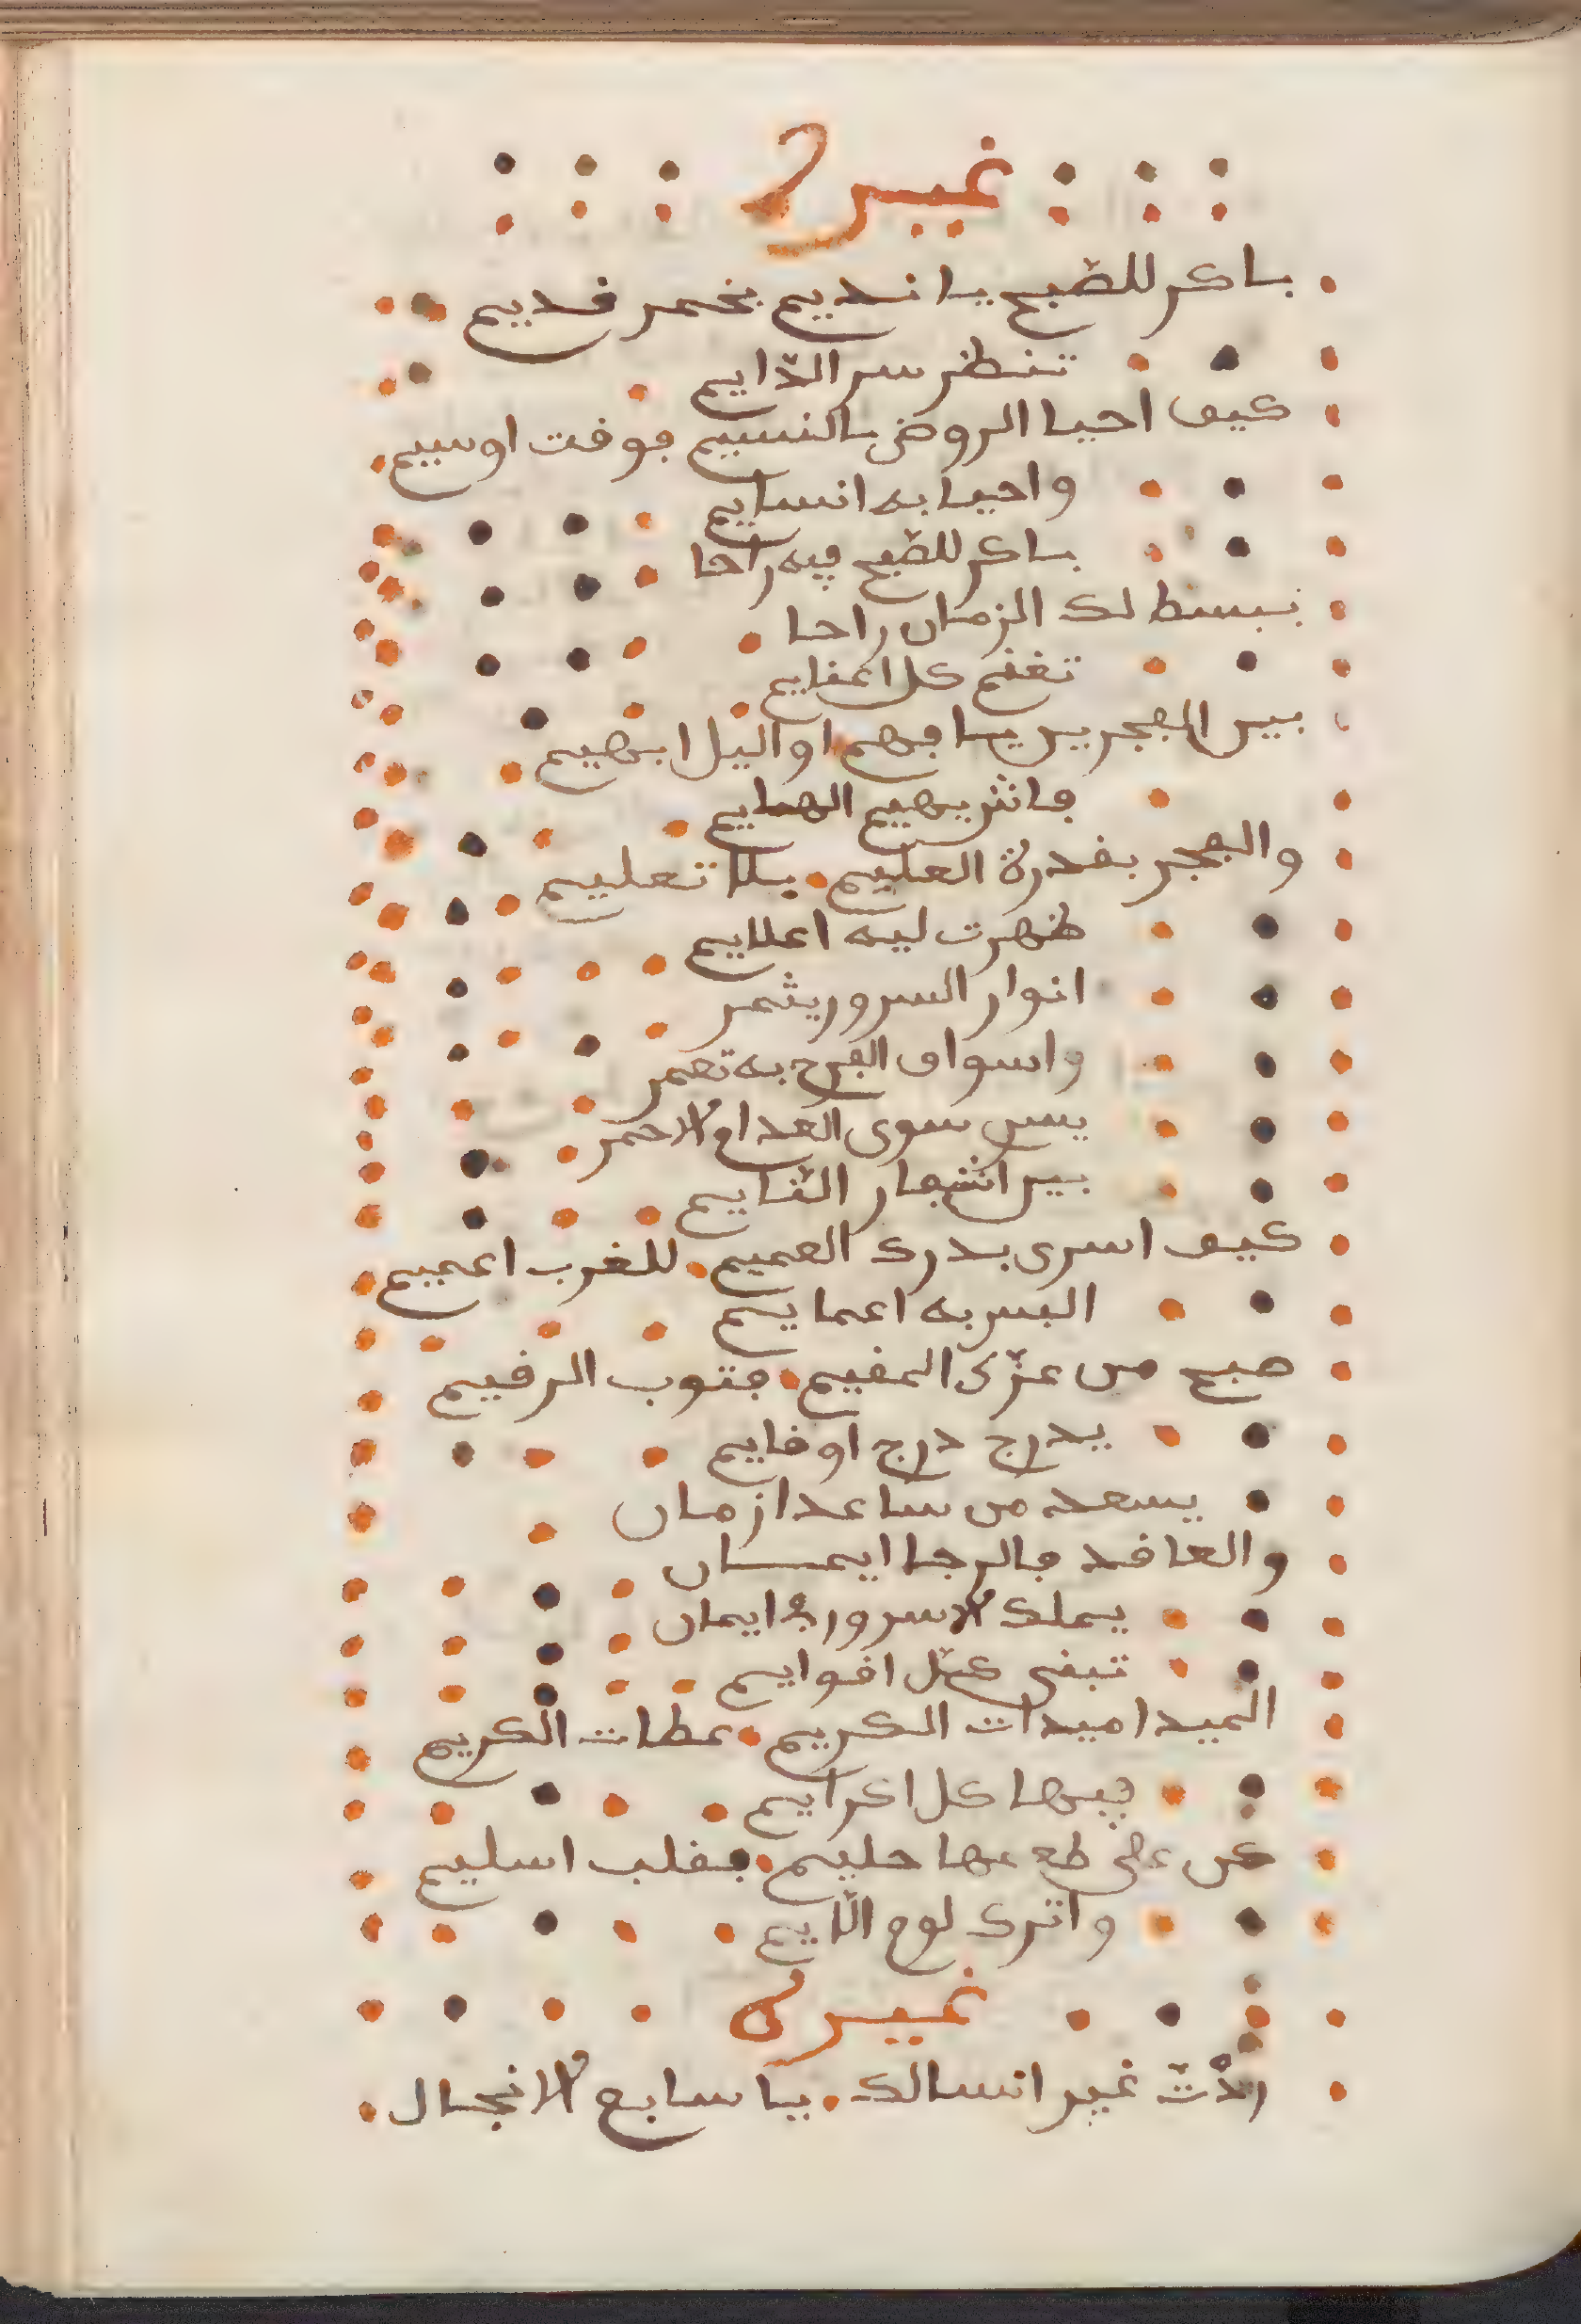 غيره
باكر للصّبح يا نديم بخمر قديم
تنظر سر الدّايم
كيف احيا الروض بالنسيم فوقت اوسيم
واحيا به انسايم
باكر للصّبح فيه راحا
يبسط لك الزمان راحا
تغنم كل اغنايم
بين الفجرين يا فهيم او اليل ابهيم
فانش يهيم الهايم
والفجر بقدرة العليم بلا تعليم
ظهرت ليه اعلايم
انوار السرور يثمر
واسواق الفرح به تعمر
يسر سوى المدام الاحمر
بين اشجار القايم
كيف اسرى بدرك العميم للغرب اعميم
البس به اعمايم
صبح من عزّك المقيم فثوب الرقيم
يدرج درج اوقايم
يسعد من ساعد ازمان
والعاقد فالرجا ايمان
يملك الاسرور فايمان
تبقى كل اقوايم
الميدا ميدات الكريم عطات الكريم
فيها كل اكرايم
كن على طعمها حليم بقلب اسليم
واترك لوم اللّايم
غيره
ردّتّ غير انسالك يا سابع الانجال